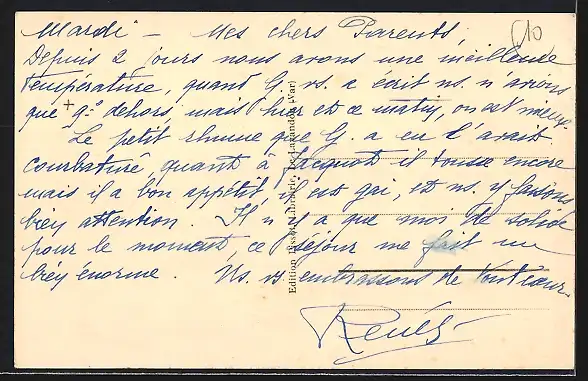 Mardi - Mes chers Parents,
Depuis 2 jours nous avons une meilleure
température, quand G. vs. a écrit ns. n'avions
que + 9° dehors, mais hier et ce matin, on est mieux.
Le petit rhume que G. a eu l'avait
courbaturé, quant à Jacquot il tousse encore
mais il a bon appétit, il est gai, et ns. y faisons
bien attention. Il n'y a que moi de solide
pour le moment, ce séjour me fait un
bien énorme. Ns. vs embrassons de tout cœur.
Renée
50
Edition Librairie, Le Lavandou (Var)